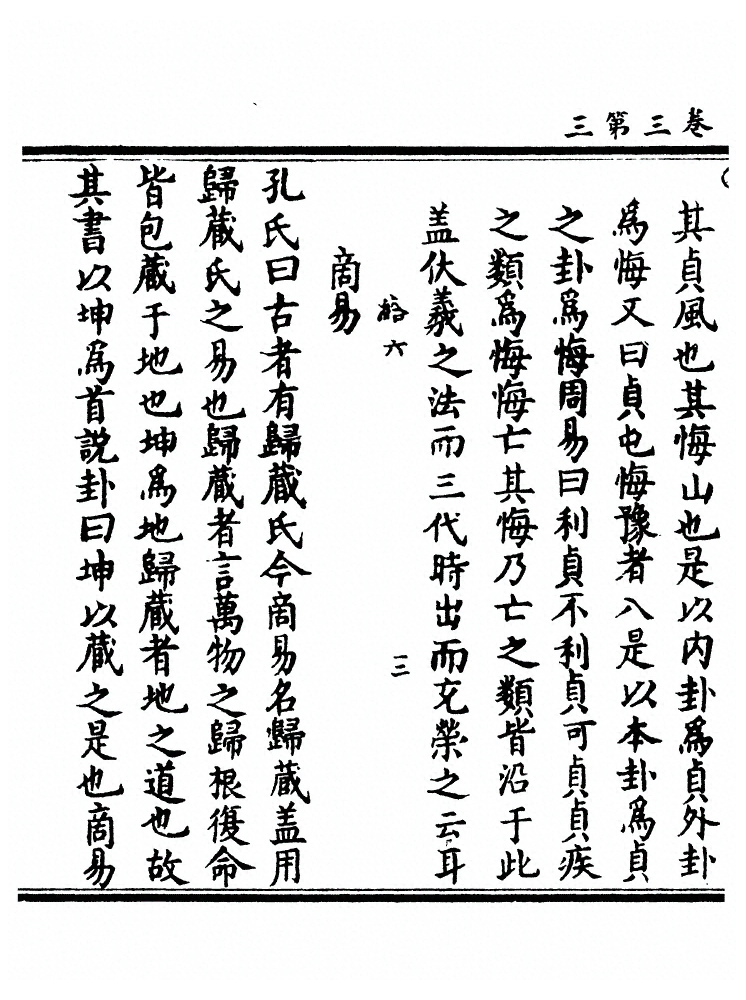 卷三第三
其貞風也其悔山也是以内卦爲貞外卦
爲悔又曰貞屯悔豫者八是以本卦爲貞
之卦爲悔周易曰利貞不利貞可貞貞疾
之類爲悔悔亡其悔乃亡之類皆沿于此
盖伏羲之法而三代時出而充榮之云耳
六 三
商易
孔氏曰古者有歸蔵氏今商易名歸蔵盖用
歸蔵氏之易也歸蔵者言萬物之歸根復命
皆包蔵于地也坤爲地歸蔵者地之道也故
其書以坤爲首説卦曰坤以蔵之是也商易